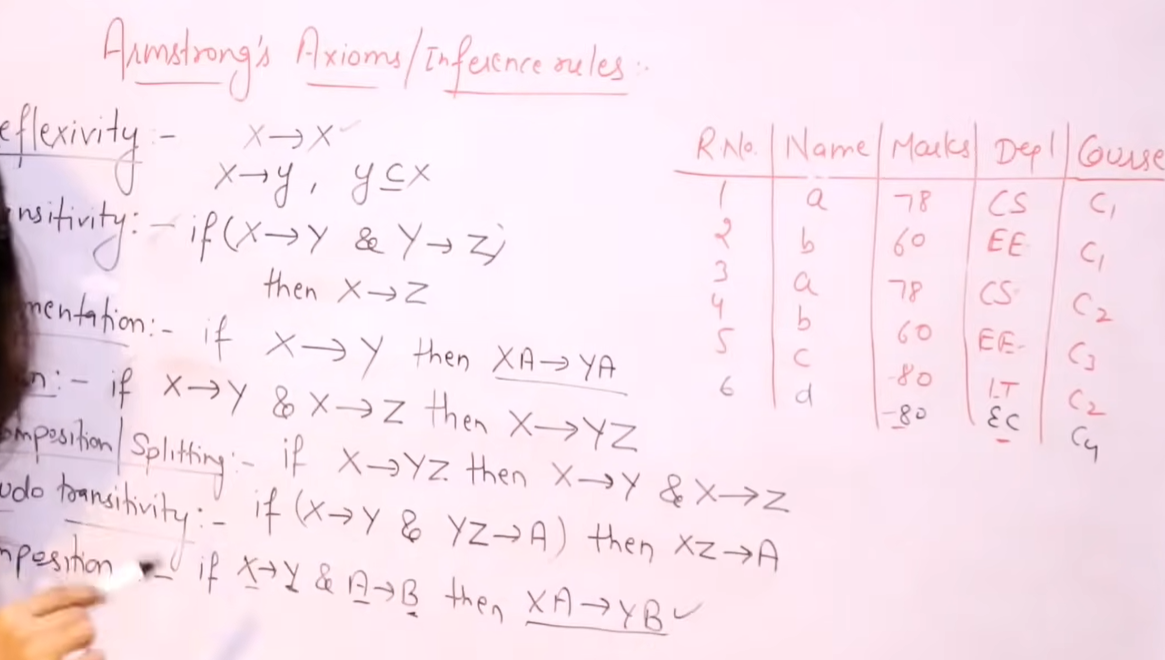 Armstrong's Axioms/Inference rules:-
eflexivity:- X→X ✓
X→y, y⊆X
nsitivity:- if (X→Y & Y→Z)
then X→Z
mentation:- if X→Y then XA→YA
n:- if X→Y & X→Z then X→YZ
omposition/Splitting:- if X→YZ then X→Y & X→Z
udo transitivity:- if (X→Y & YZ→A) then XZ→A
mposition :- if X→Y & A→B then XA→YB ✓
R.No. Name Marks Dept Course
1 a 78 CS C1
2 b 60 EE C1
3 a 78 CS C2
4 b 60 EE C3
5 c 80 IT C2
6 d 80 EC C4